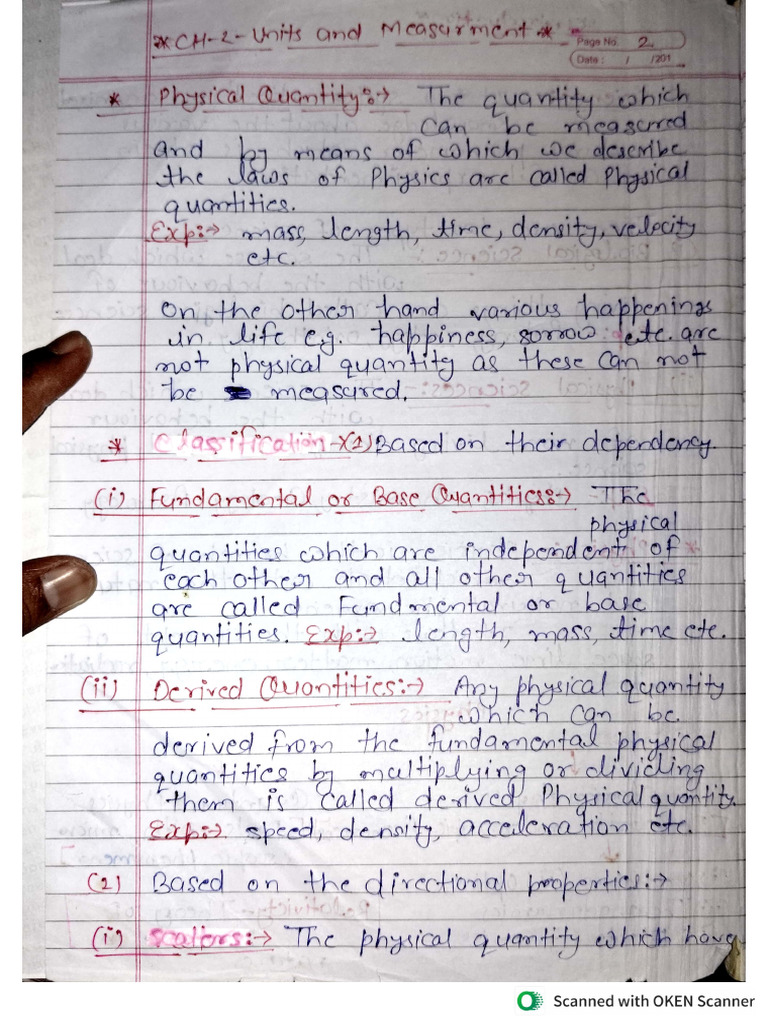 * CH-2-Units and Measurment *
Page No. 2
Date : / /201
* Physical Quantity:→ The quantity which
can be measured
and by means of which we describe
the laws of Physics are called Physical
quantities.
Exp:→ mass, length, time, density, velocity
etc.
On the other hand various happenings
in life e.g. happiness, sorrow etc. are
not physical quantity as these can not
be measured.
* Classification → (1) Based on their dependency.
(i) Fundamental or Base Quantities:→ The
physical
quantities which are independent of
each other and all other quantities
are called Fundmental or base
quantities. Exp:→ length, mass, time etc.
(ii) Derived Quantities:→ Any physical quantity
which can be
derived from the fundamental physical
quantities by multiplying or dividing
them is called derived Physical quantity.
Exp:→ speed, density, acceleration etc.
(2) Based on the directional properties:→
(i) Scalers:→ The physical quantity which have
Scanned with OKEN Scanner